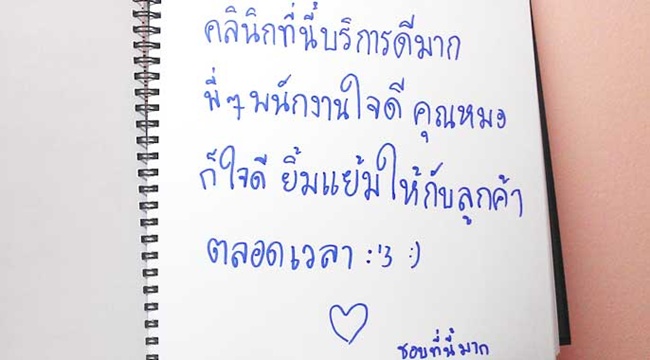 คลินิกที่นี้บริการดีมาก
พี่ๆพนักงานใจดี คุณหมอ
ก็ใจดี ยิ้มแย้มให้กับลูกค้า
ตลอดเวลา :'3 :)
ชอบที่นี้มาก